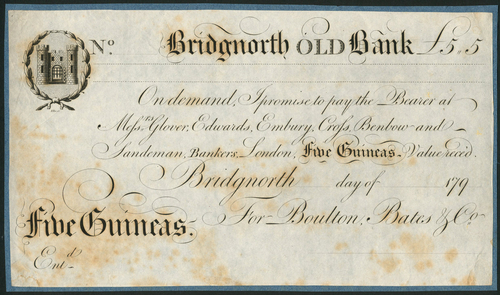 No. Bridgnorth OLD Bank £5,,5
On demand, I promise to pay the Bearer at
Messrs. Glover, Edwards, Embury, Cross, Benbow and
Sandeman, Bankers, London, Five Guineas. Value reced.
Bridgnorth day of 179
Five Guineas. For Boulton, Bates & Co.
Entd.